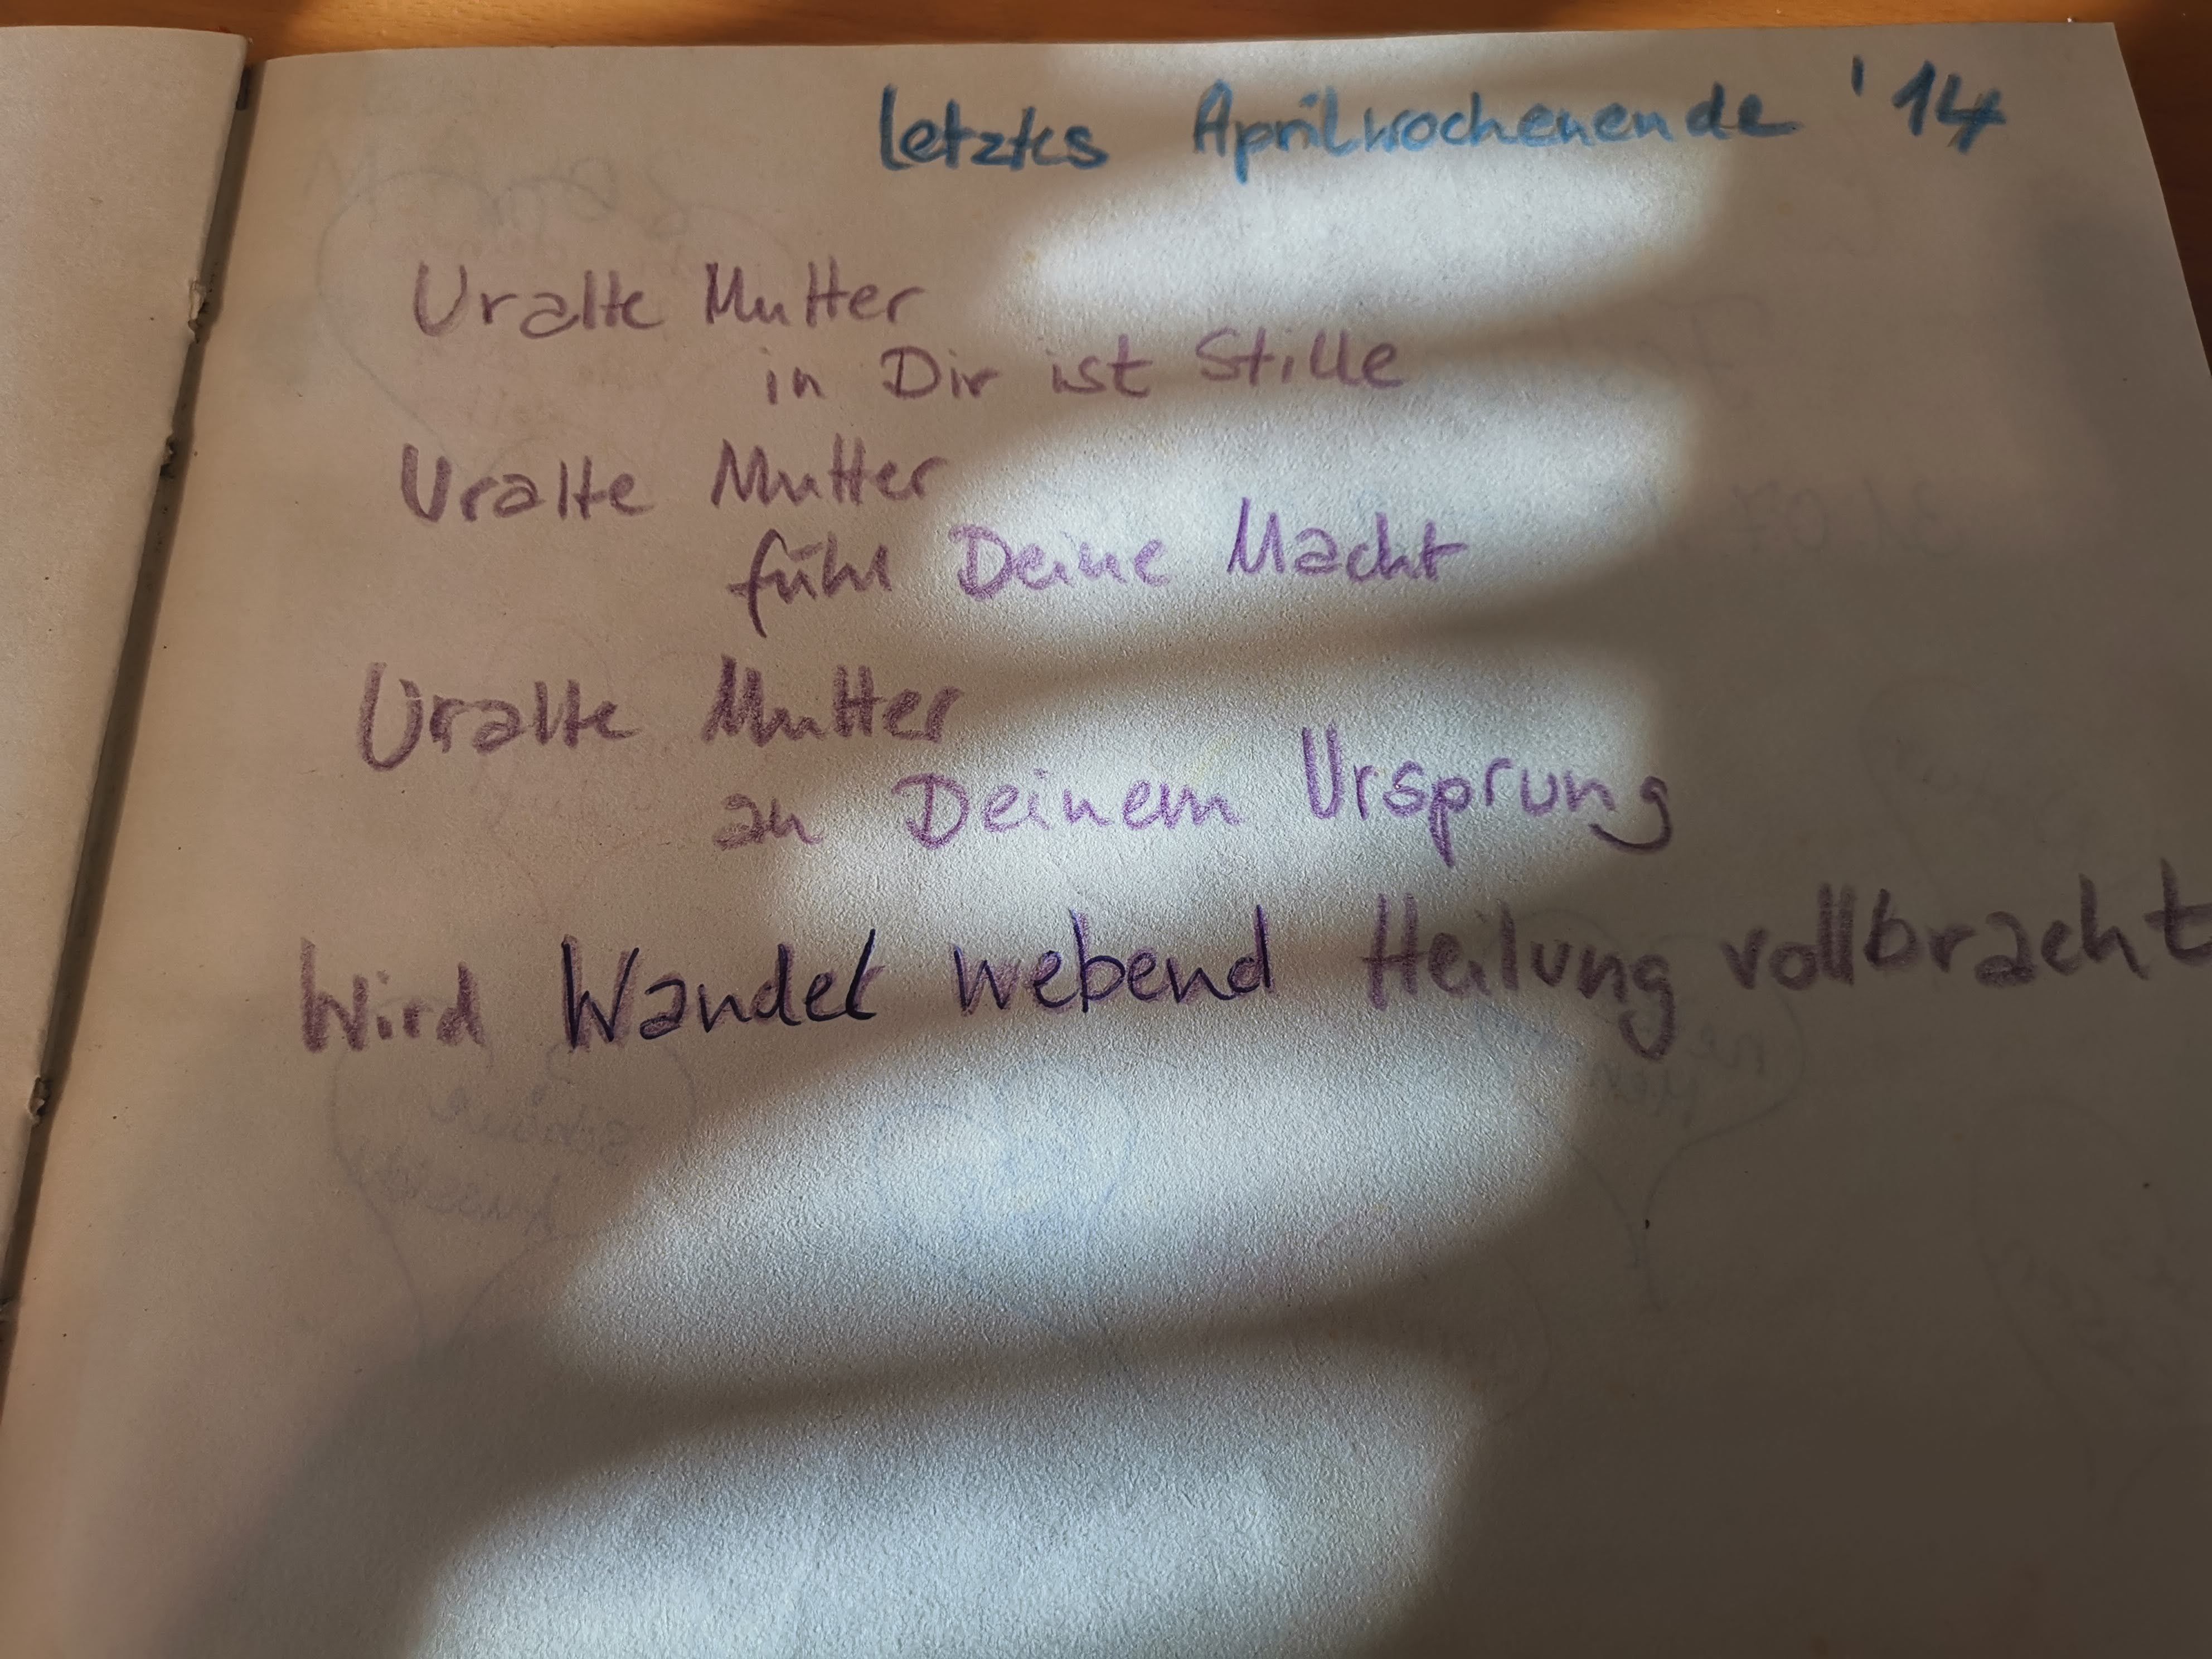 letztes Aprilwochenende '14
Uralte Mutter
in Dir ist Stille
Uralte Mutter
fühl Deine Macht
Uralte Mutter
an Deinem Ursprung
Wird Wandel webend Heilung vollbracht